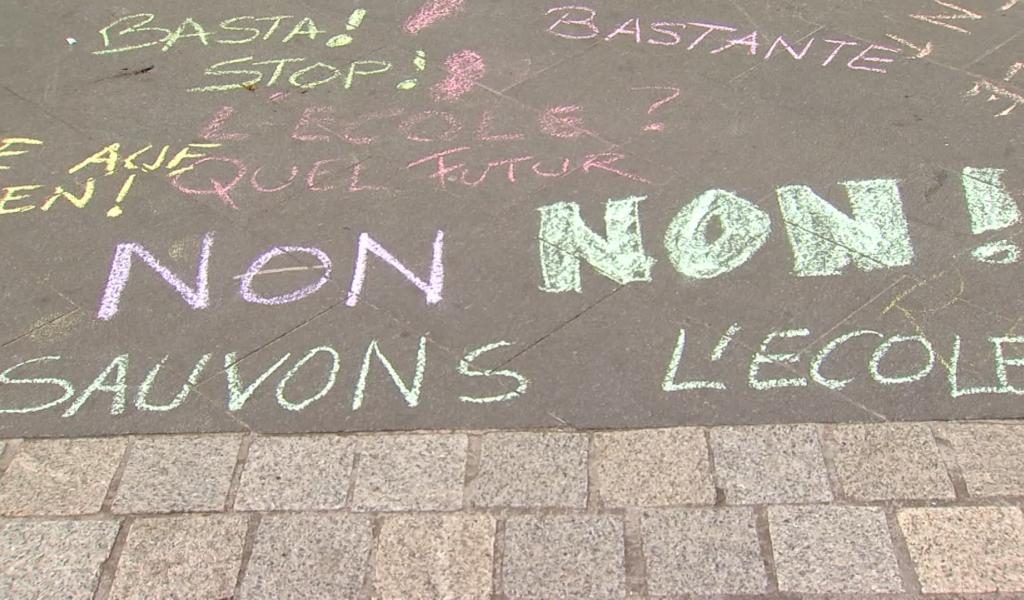 BASTA!
STOP!
BASTANTE
L'ECOLE ?
QUEL FUTUR
EN!
NON NON!
SAUVONS L'ECOLE